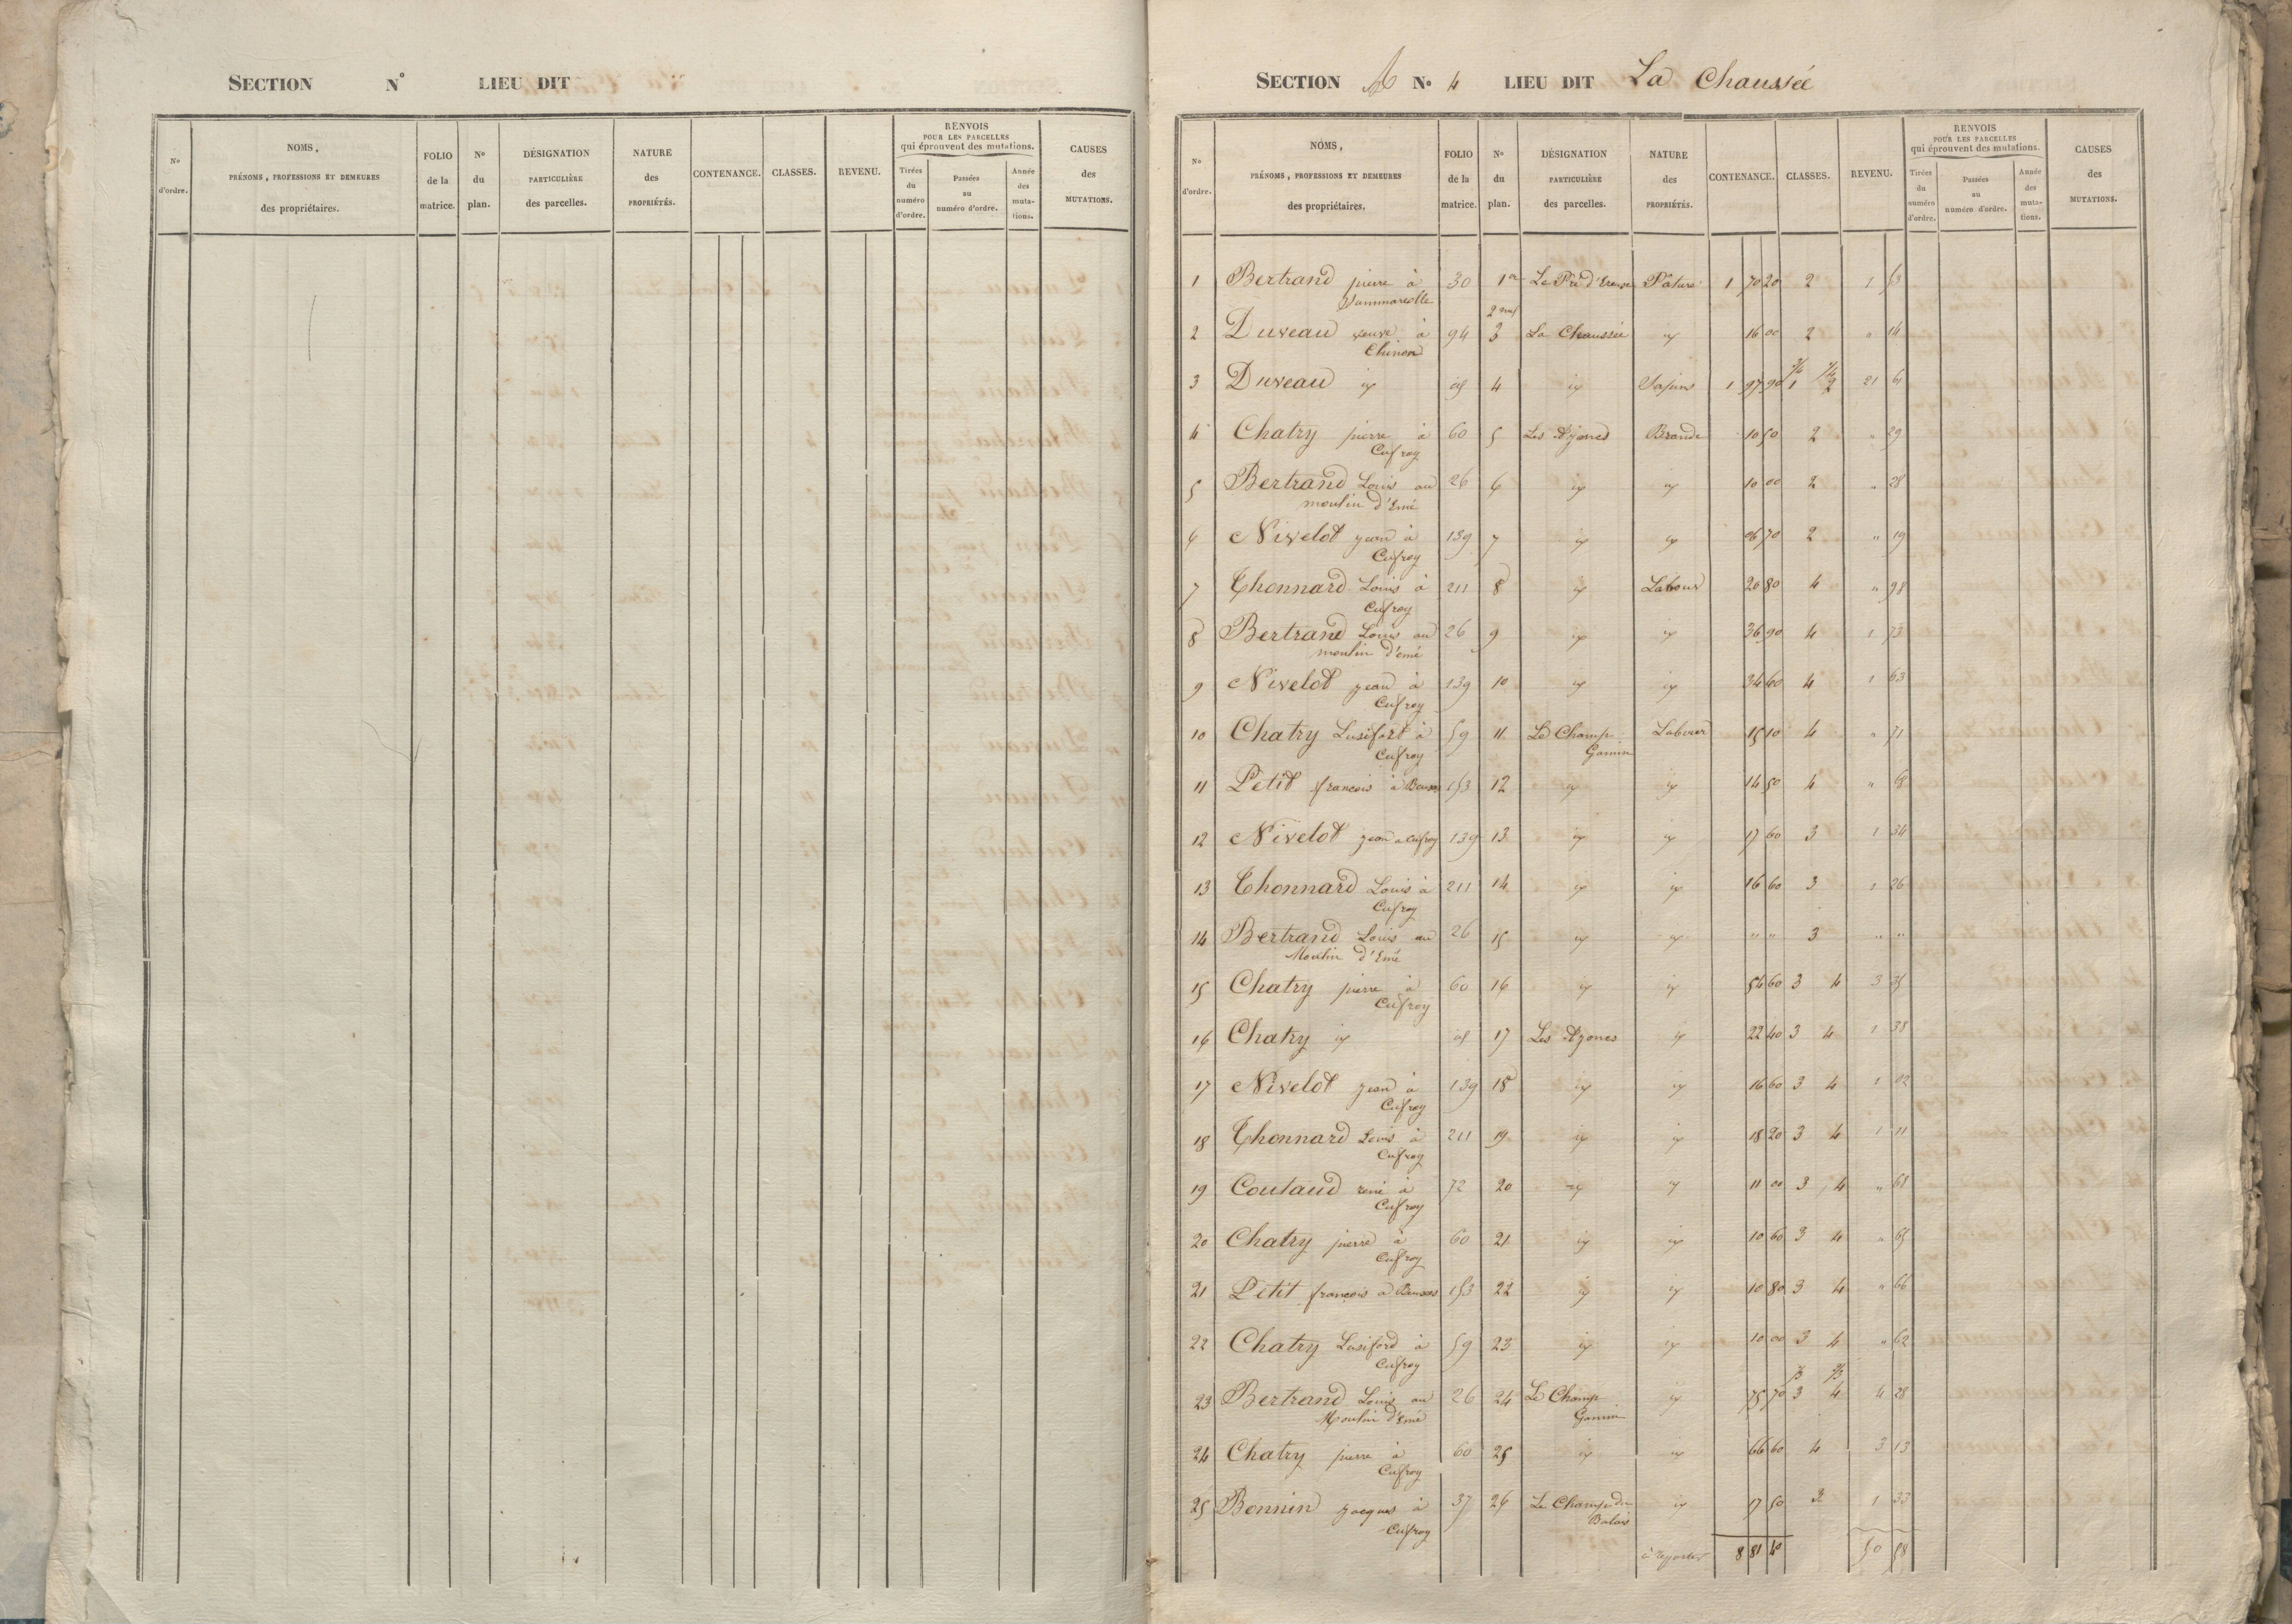 SECTION N° LIEU DIT
N° d'ordre. NOMS, PRÉNOMS, PROFESSIONS ET DEMEURES des propriétaires. FOLIO de la matrice. N° du plan. DÉSIGNATION PARTICULIÈRE des parcelles. NATURE des PROPRIÉTÉS. CONTENANCE. CLASSES. REVENU. RENVOIS POUR LES PARCELLES qui éprouvent des mutations. Tirées du numéro d'ordre. Passées au numéro d'ordre. Année des mutations. CAUSES des MUTATIONS.
SECTION A N° 4 LIEU DIT La Chaussée
N° d'ordre. NOMS, PRÉNOMS, PROFESSIONS ET DEMEURES des propriétaires. FOLIO de la matrice. N° du plan. DÉSIGNATION PARTICULIÈRE des parcelles. NATURE des PROPRIÉTÉS. CONTENANCE. CLASSES. REVENU. RENVOIS POUR LES PARCELLES qui éprouvent des mutations. Tirées du numéro d'ordre. Passées au numéro d'ordre. Année des mutations. CAUSES des MUTATIONS.
1 Bertrand pierre à 30 1er Le Pré Pature 1 70 20 2 1 63
2 Duveau veuve à 94 3 La Chaussée id 16 00 2 " 14
Chinon
3 Duveau id id 4 id 1 97 90 1 2 21 61
4 Chatry pierre à 60 5 Les Ajones Brande 10 50 2 " 29
Cufroy
5 Bertrand Louis au 26 6 id id 10 00 2 " 28
moulin d'Emé
6 Nivelot jean à 139 7 id id 06 70 2 " 19
Cufroy
7 Thonnard Louis à 211 8 id Labour 20 80 4 " 98
Cufroy
8 Bertrand Louis au 26 9 id id 36 90 4 1 73
moulin d'emé
9 Nivelot jean à 139 10 id id 34 60 4 1 63
Cufroy
10 Chatry Lusifort à 59 11 Le Champ Labour 15 10 4 " 71
Cufroy Gamin
11 Petit francois à 153 12 id id 14 50 4 " 68
12 Nivelot jean a cufroy 139 13 id id 17 60 3 1 34
13 Thonnard Louis à 211 14 id id 16 60 3 1 26
Cufroy
14 Bertrand Louis au 26 15 id id " " 3 " "
Moulin d'Emé
15 Chatry pierre à 60 16 id id 54 60 3 4 3 35
Cufroy
16 Chatry id id 17 Les Ajones id 22 40 3 4 1 38
17 Nivelot jean à 139 18 id id 16 60 3 4 1 02
Cufroy
18 Thonnard Louis à 211 19 id id 18 20 3 4 1 11
Cufroy
19 Coutaud rené à 72 20 id id 11 00 3 4 " 68
Cufroy
20 Chatry pierre à 60 21 id id 10 60 3 4 " 65
Cufroy
21 Petit francois a 153 22 id id 10 80 3 4 " 66
22 Chatry Lusiford à 59 23 id id 10 00 3 4 " 62
Cufroy
23 Bertrand Louis au 26 24 Le Champ id 75 70 3 4 4 28
Moulin d'Emé Gamin
24 Chatry pierre à 60 25 id id 66 60 4 3 13
Cufroy
25 Bonnin jacques à 37 26 Le Champ du id 17 50 3 1 33
Cufroy Balais
à reporter 8 81 40 50 58